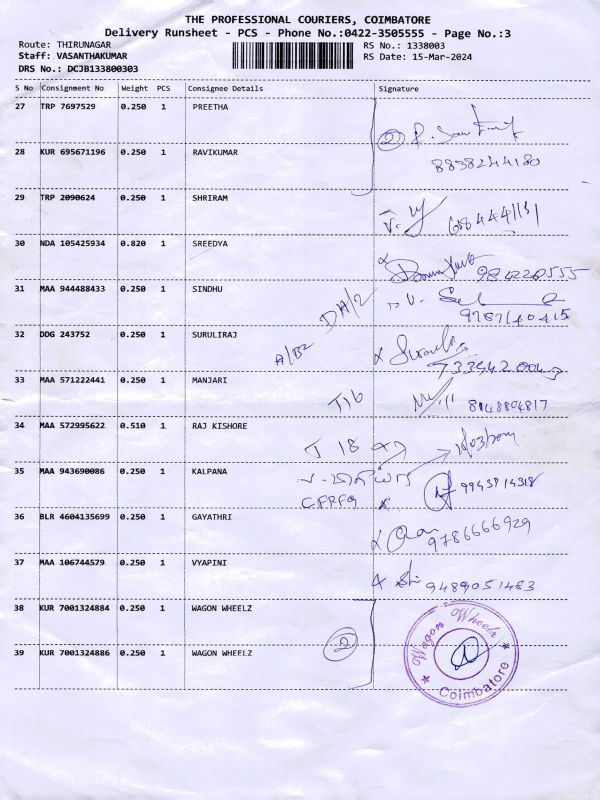 THE PROFESSIONAL COURIERS, COIMBATORE
Delivery Runsheet - PCS - Phone No.:0422-3505555 - Page No.:3
Route: THIRUNAGAR RS No.: 1338003
Staff: VASANTHAKUMAR RS Date: 15-Mar-2024
DRS No.: DCJB133800303
S No Consignment No Weight PCS Consignee Details Signature
27 TRP 7697529 0.250 1 PREETHA
2
28 KUR 695671196 0.250 1 RAVIKUMAR
8838244180
29 TRP 2090624 0.250 1 SHRIRAM
30 NDA 105425934 0.820 1 SREEDYA
984220555
31 MAA 944488433 0.250 1 SINDHU
DA/2
32 DDG 243752 0.250 1 SURULIRAJ
A/B2
33 MAA 571222441 0.250 1 MANJARI
8148804817
34 MAA 572995622 0.510 1 RAJ KISHORE
T 18
35 MAA 943690086 0.250 1 KALPANA
36 BLR 4604135699 0.250 1 GAYATHRI
9786666929
37 MAA 106744579 0.250 1 VYAPINI
9489051463
38 KUR 7001324884 0.250 1 WAGON WHEELZ
2
39 KUR 7001324886 0.250 1 WAGON WHEELZ
Wagon Wheelz
Coimbatore